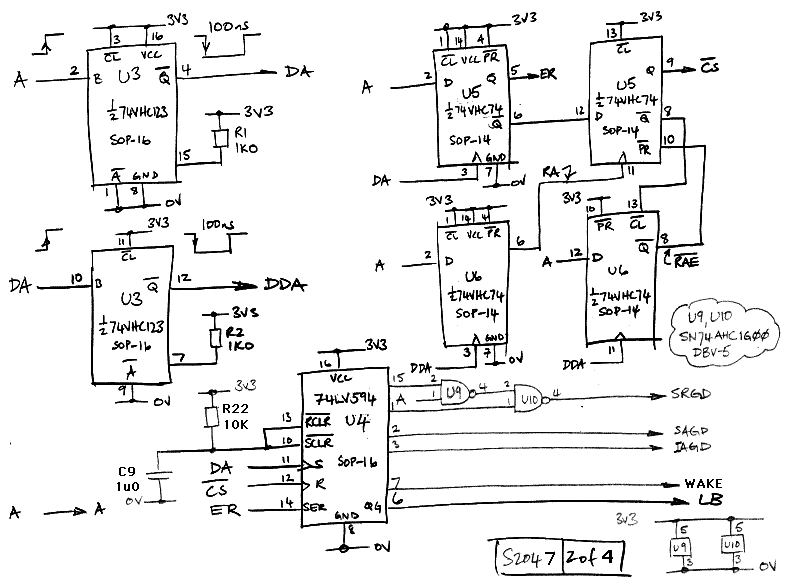 3V3
100ns
3
16
CL
VCC
A
2
B
U3
Q
4
DA
½ 74VHC123
SOP-16
3V3
R1
1K0
15
A
GND
1
8
0V
3V3
100ns
11
CL
DA
10
B
U3
Q
12
DDA
½ 74VHC123
SOP-16
3V3
R2
1K0
7
A
9
0V
3V3
1
14
4
CL
VCC
PR
A
2
D
Q
5
ER
U5
½ 74VHC74
Q
6
SOP-14
GND
DA
3
7
0V
3V3
13
CL
U5
Q
9
CS
½ 74VHC74
12
D
Q
8
SOP-14
PR
10
11
RA
3V3
1
14
4
CL
VCC
PR
A
2
D
6
U6
½ 74VHC74
SOP-14
GND
DDA
3
7
0V
3V3
10
13
PR
CL
A
12
D
Q
8
U6
RAE
½ 74VHC74
SOP-14
DDA
11
U9, U10
SN74AHC1G00
DBV-5
3V3
16
VCC
74LV594
U4
SOP-16
3V3
R22
10K
C9
1u0
0V
13
RCLR
10
SCLR
DA
11
S
CS
12
R
ER
14
SER
QG
GND
8
0V
15
2
A
1
U9
4
2
1
1
U10
4
SRGD
2
SAGD
3
IAGD
7
WAKE
6
LB
A
A
3V3
5
5
U9
U10
3
3
0V
S2047
2 of 4